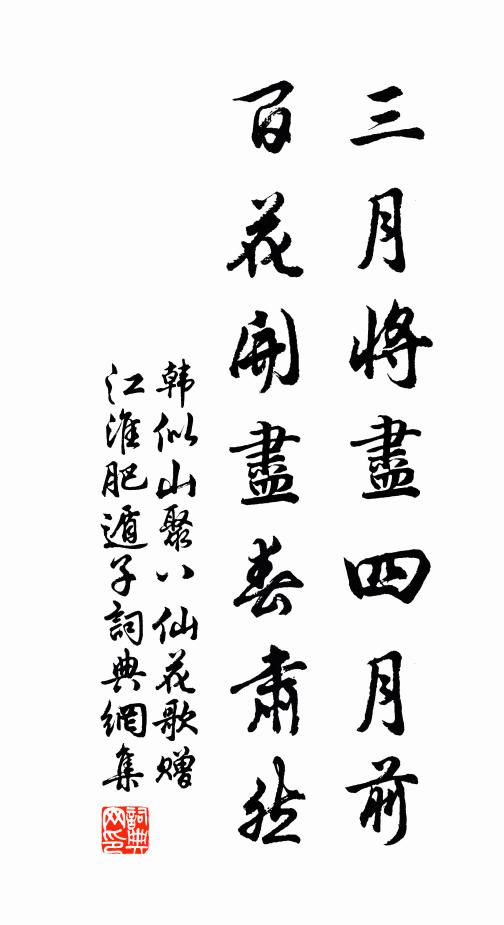 三月將盡四月前
百花開盡春肅然
韩似山聚八仙花歌赠
江淮肥遁子詞典網集
詞典网印